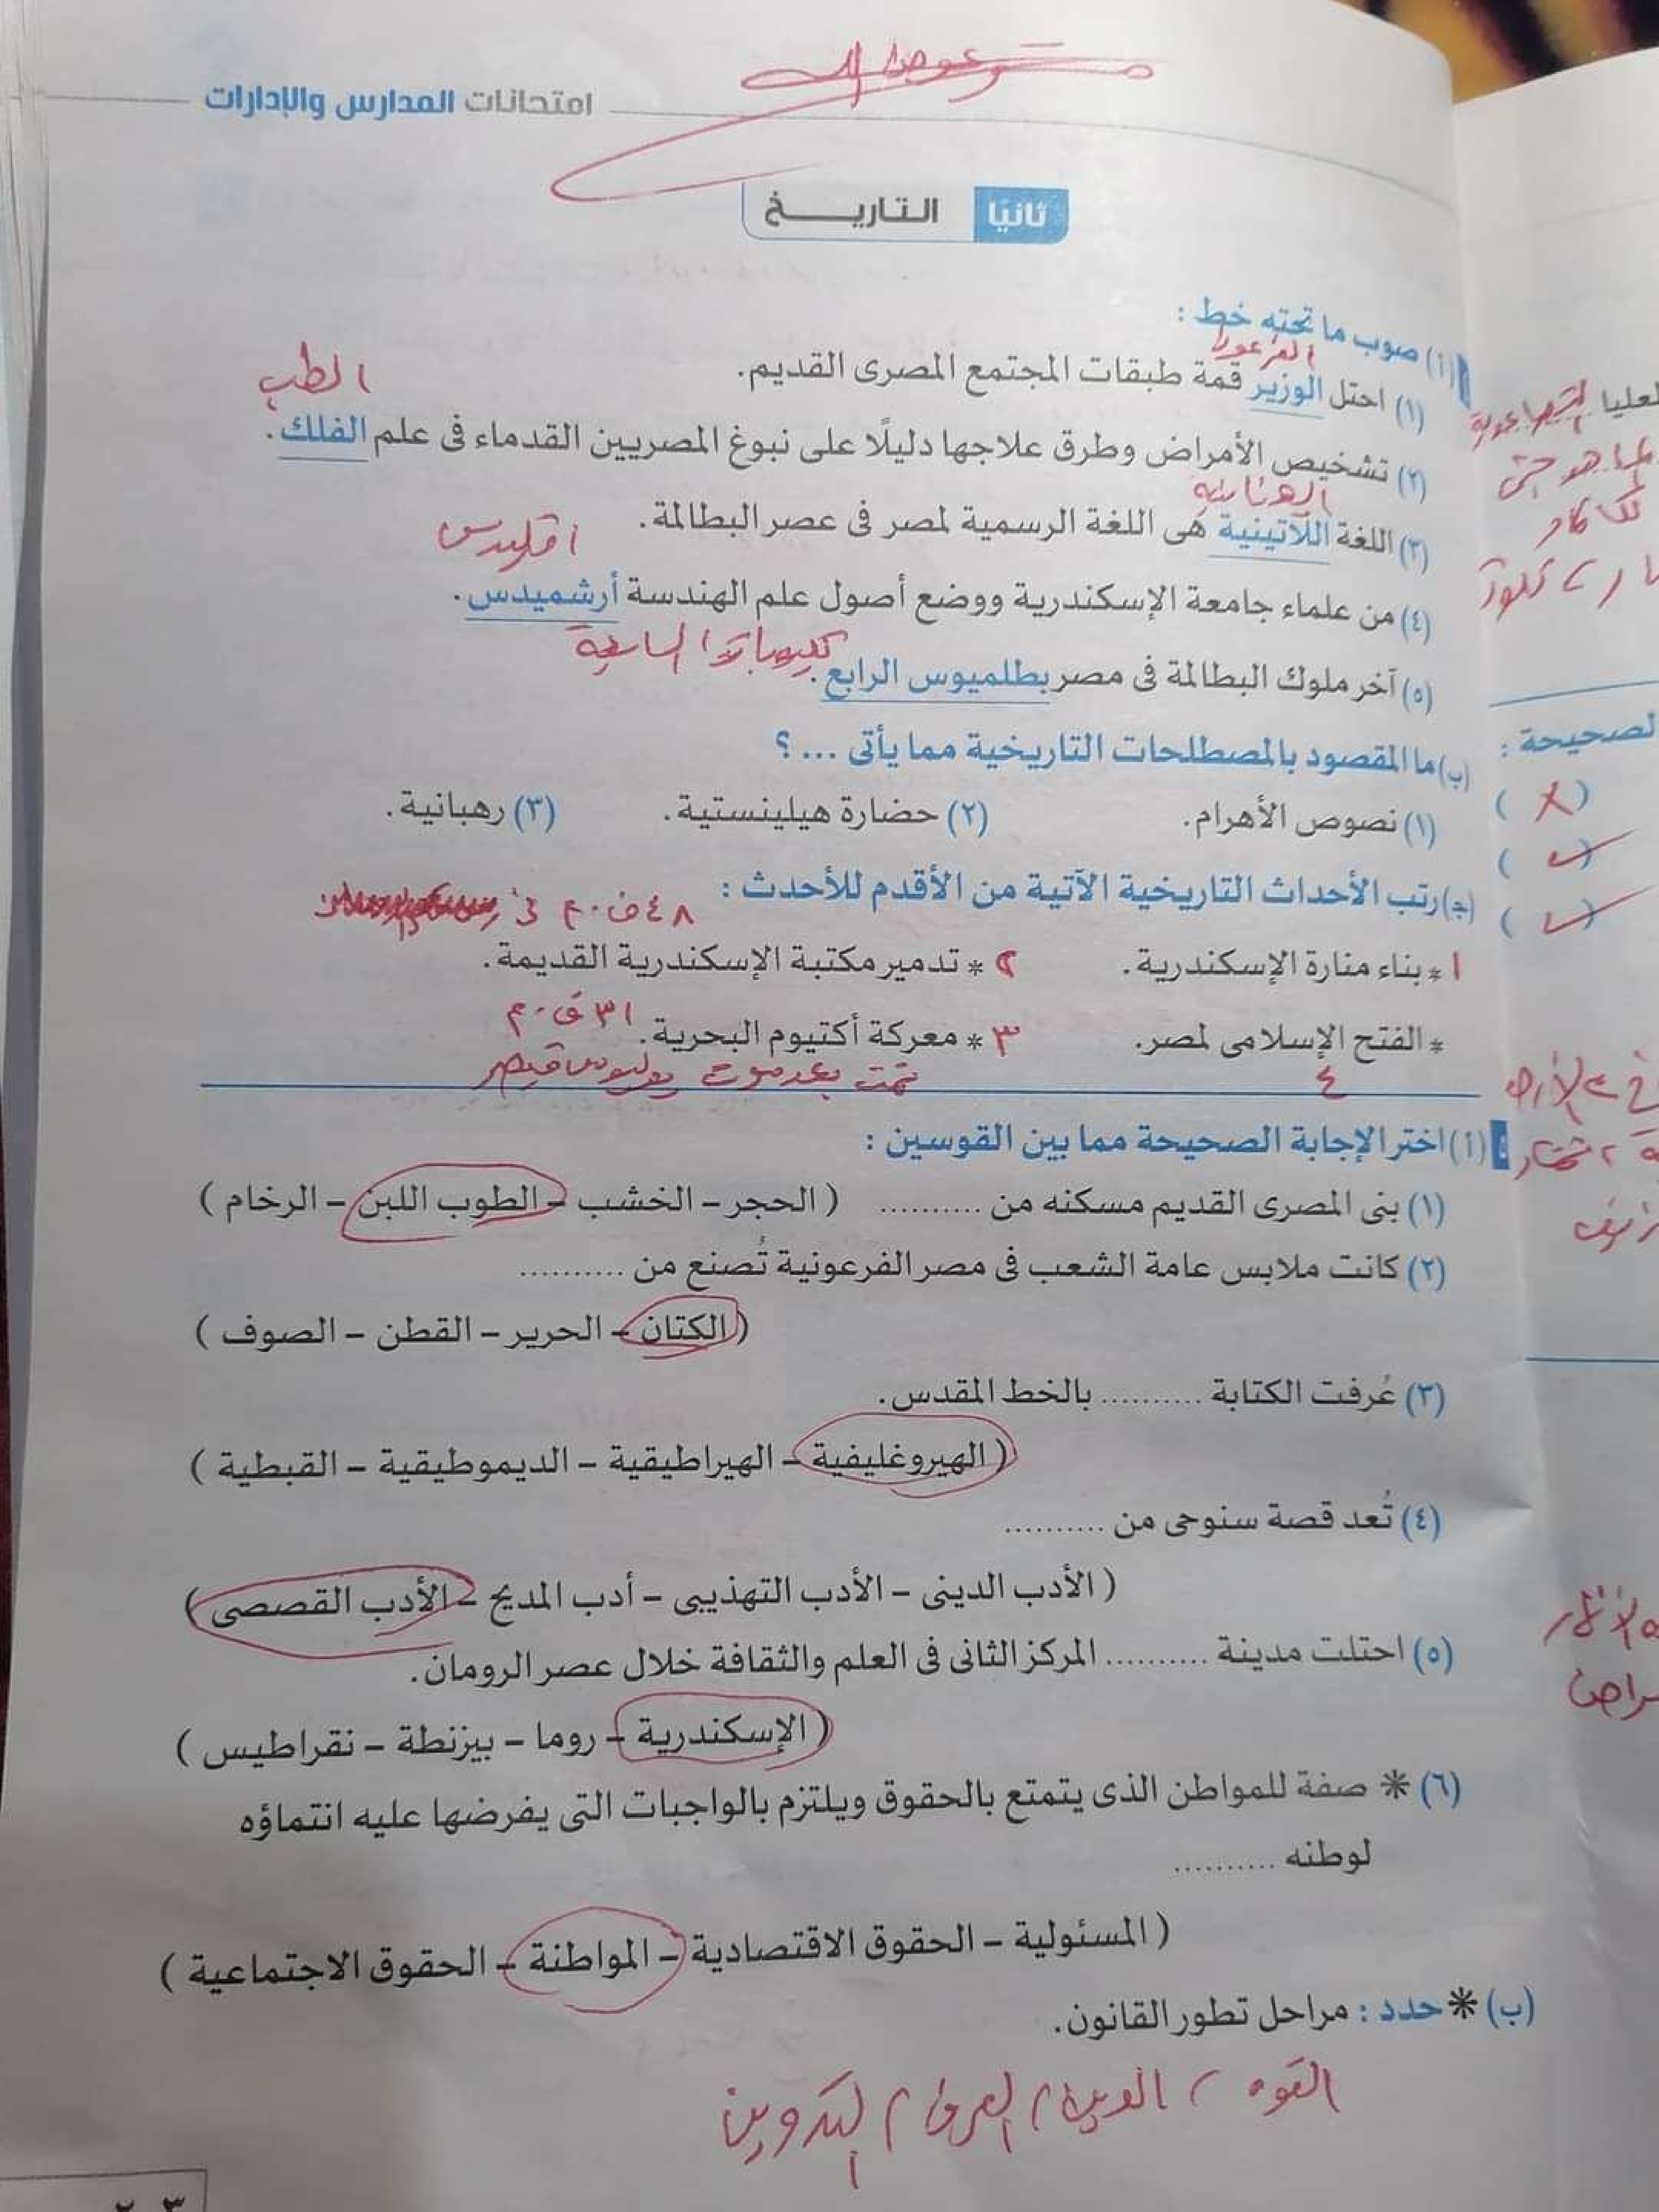 امتحانات المدارس والإدارات
ثانيًا التاريـــخ
(أ) صوب ما تحته خط :
الفرعون
(١) احتل الوزير قمة طبقات المجتمع المصرى القديم.
الطب
(٢) تشخيص الأمراض وطرق علاجها دليلًا على نبوغ المصريين القدماء فى علم الفلك.
(٣) اللغة اللاتينية هى اللغة الرسمية لمصر فى عصر البطالمة.
اقليدس
(٤) من علماء جامعة الإسكندرية ووضع أصول علم الهندسة أرشميدس.
كليوباترا السابعة
(٥) آخر ملوك البطالمة فى مصر بطلميوس الرابع.
(ب) ما المقصود بالمصطلحات التاريخية مما يأتى ... ؟
(١) نصوص الأهرام. (٢) حضارة هيلينستية. (٣) رهبانية.
(جـ) رتب الأحداث التاريخية الآتية من الأقدم للأحدث :
٤٨ ق.م فى
١ * بناء منارة الإسكندرية. ٢ * تدمير مكتبة الإسكندرية القديمة.
* الفتح الإسلامى لمصر. ٣ * معركة أكتيوم البحرية. ٣١ ق.م
٤ تمت بعد موت يوليوس قيصر
(أ) اختر الإجابة الصحيحة مما بين القوسين :
(١) بنى المصرى القديم مسكنه من .......... ( الحجر – الخشب – الطوب اللبن – الرخام )
(٢) كانت ملابس عامة الشعب فى مصر الفرعونية تُصنع من ..........
( الكتان – الحرير – القطن – الصوف )
(٣) عُرفت الكتابة .......... بالخط المقدس.
( الهيروغليفية – الهيراطيقية – الديموطيقية – القبطية )
(٤) تُعد قصة سنوحى من ..........
( الأدب الدينى – الأدب التهذيبى – أدب المديح – الأدب القصصى )
(٥) احتلت مدينة .......... المركز الثانى فى العلم والثقافة خلال عصر الرومان.
( الإسكندرية – روما – بيزنطة – نقراطيس )
(٦) * صفة للمواطن الذى يتمتع بالحقوق ويلتزم بالواجبات التى يفرضها عليه انتماؤه
لوطنه ..........
( المسئولية – الحقوق الاقتصادية – المواطنة – الحقوق الاجتماعية )
(ب) * حدد : مراحل تطور القانون.
القوة / الدين / العرف / التدوين